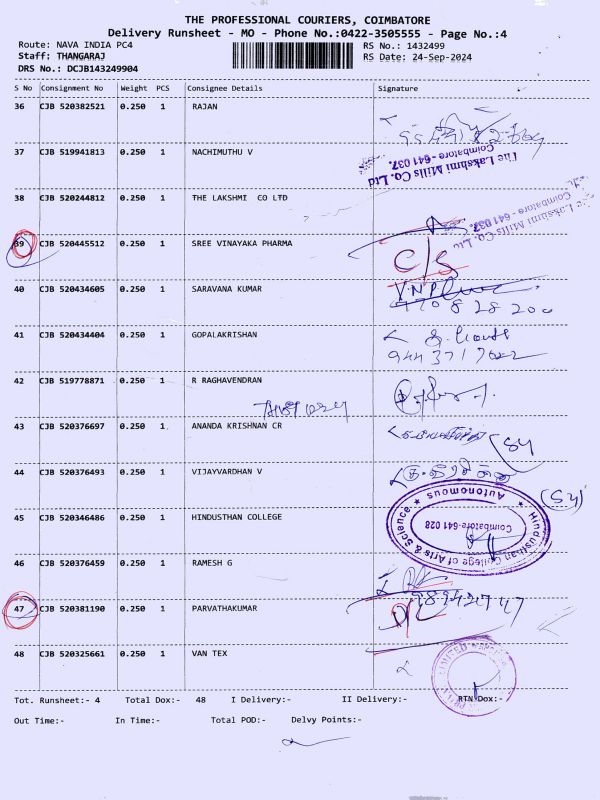 THE PROFESSIONAL COURIERS, COIMBATORE
Delivery Runsheet - MO - Phone No.:0422-3505555 - Page No.:4
Route: NAVA INDIA PC4 RS No.: 1432499
Staff: THANGARAJ RS Date: 24-Sep-2024
DRS No.: DCJB143249904
S No Consignment No Weight PCS Consignee Details Signature
36 CJB 520382521 0.250 1 RAJAN
37 CJB 519941813 0.250 1 NACHIMUTHU V
The Lakshmi Mills Co. Ltd
Coimbatore - 641 037.
38 CJB 520244812 0.250 1 THE LAKSHMI CO LTD
The Lakshmi Mills Co. Ltd
Coimbatore - 641 037.
39 CJB 520445512 0.250 1 SREE VINAYAKA PHARMA
C/S
40 CJB 520434605 0.250 1 SARAVANA KUMAR
41 CJB 520434404 0.250 1 GOPALAKRISHAN
42 CJB 519778871 0.250 1 R RAGHAVENDRAN
43 CJB 520376697 0.250 1 ANANDA KRISHNAN CR
44 CJB 520376493 0.250 1 VIJAYVARDHAN V
45 CJB 520346486 0.250 1 HINDUSTHAN COLLEGE
Hindusthan College of Arts & Science
Autonomous
Coimbatore-641 028
46 CJB 520376459 0.250 1 RAMESH G
47 CJB 520381190 0.250 1 PARVATHAKUMAR
48 CJB 520325661 0.250 1 VAN TEX
Tot. Runsheet:- 4 Total Dox:- 48 I Delivery:- II Delivery:- RTN Dox:-
Out Time:- In Time:- Total POD:- Delvy Points:-